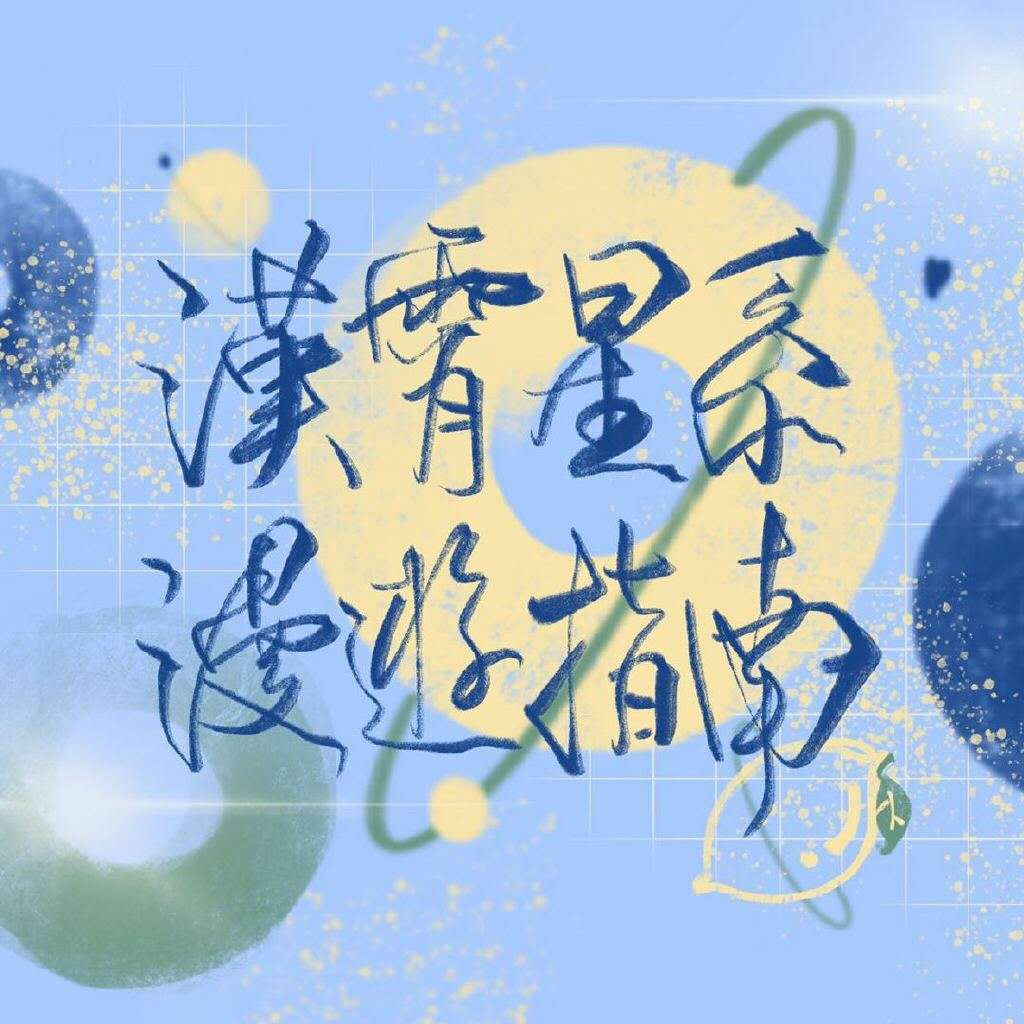 漢霄星系
漫遊指南